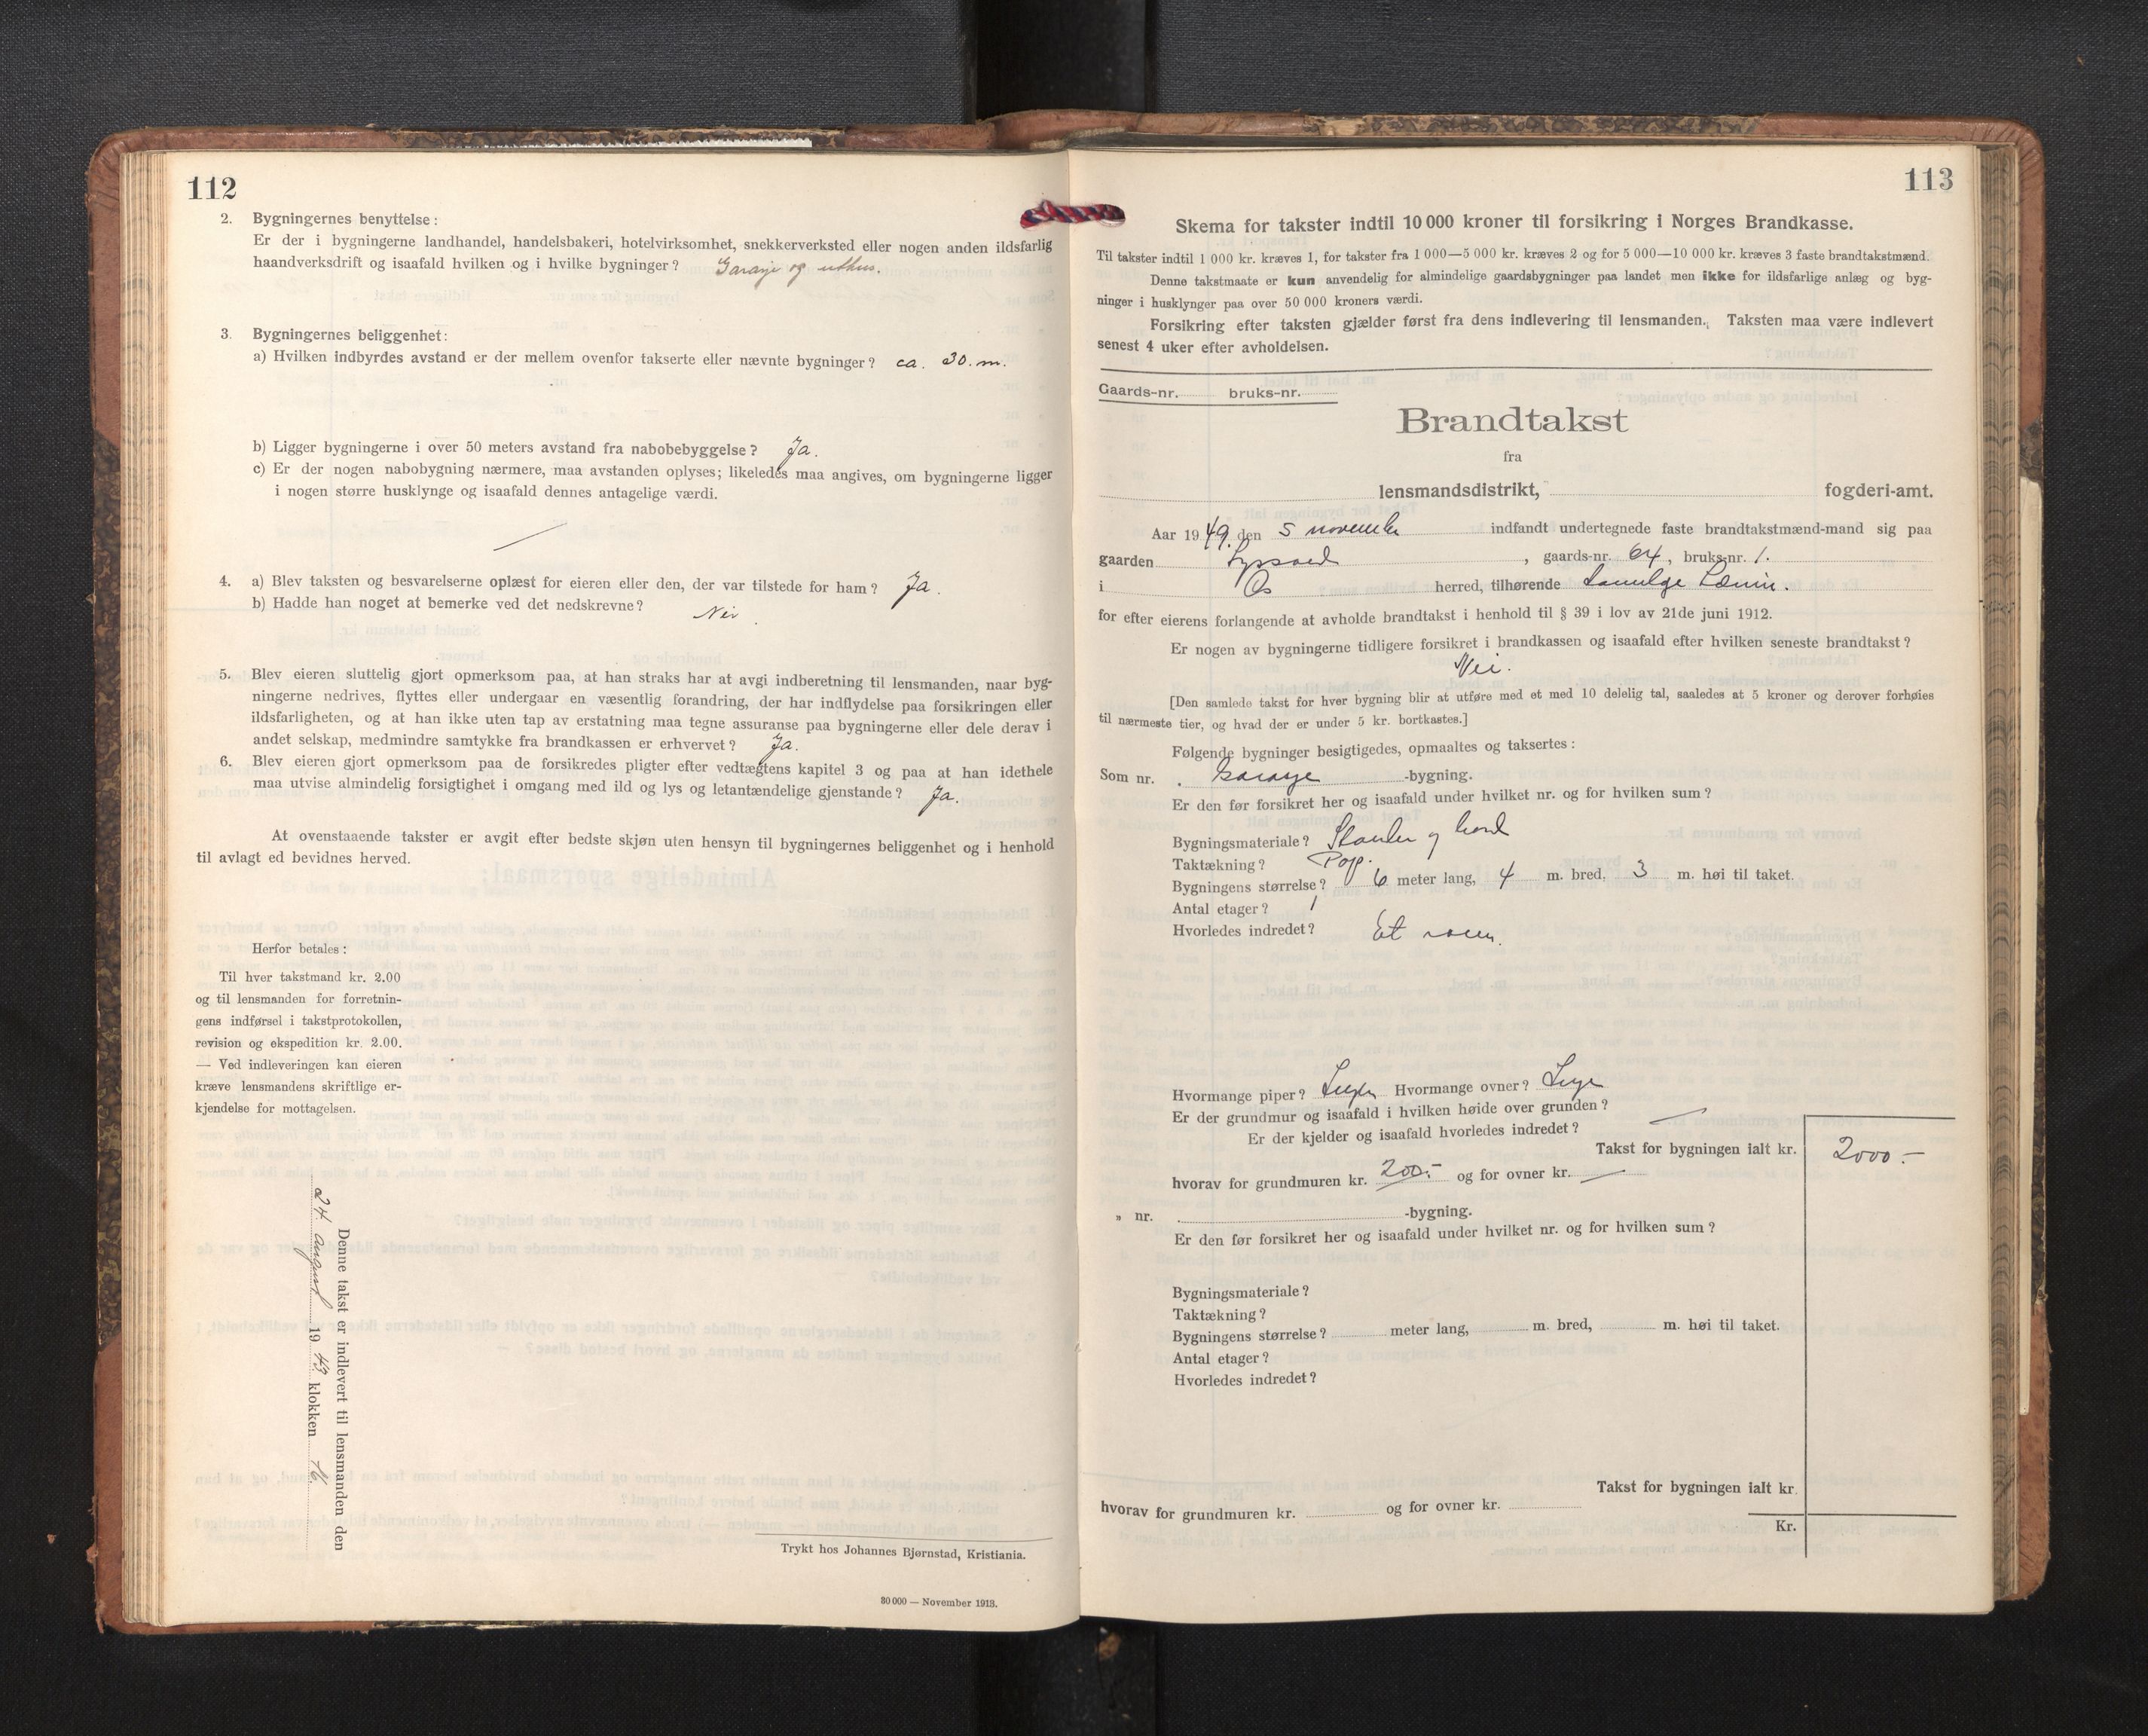 112
2. Bygningernes benyttelse:
Er der i bygningerne landhandel, handelsbakeri, hotelvirksomhet, snekkerverksted eller nogen anden ildsfarlig
haandverksdrift og isaafald hvilken og i hvilke bygninger? Garasje og uthus.
3. Bygningernes beliggenhet:
a) Hvilken indbyrdes avstand er der mellem ovenfor takserte eller nævnte bygninger? ca. 30. m.
b) Ligger bygningerne i over 50 meters avstand fra nabobebyggelse? Ja.
c) Er der nogen nabobygning nærmere, maa avstanden oplyses; likeledes maa angives, om bygningerne ligger
i nogen større husklynge og isaafald dennes antagelige værdi.
4. a) Blev taksten og besvarelserne oplæst for eieren eller den, der var tilstede for ham? Ja.
b) Hadde han noget at bemerke ved det nedskrevne? Nei.
5. Blev eieren sluttelig gjort opmerksom paa, at han straks har at avgi indberetning til lensmanden, naar byg-
ningerne nedrives, flyttes eller undergaar en væsentlig forandring, der har indflydelse paa forsikringen eller
ildsfarligheten, og at han ikke uten tap av erstatning maa tegne assuranse paa bygningerne eller dele derav i
andet selskap, medmindre samtykke fra brandkassen er erhvervet? Ja.
6. Blev eieren gjort opmerksom paa de forsikredes pligter efter vedtægtens kapitel 3 og paa at han idethele
maa utvise almindelig forsigtighet i omgang med ild og lys og letantændelige gjenstande? Ja.
At ovenstaaende takster er avgit efter bedste skjøn uten hensyn til bygningernes beliggenhet og i henhold
til avlagt ed bevidnes herved.
Herfor betales:
Til hver takstmand kr. 2.00
og til lensmanden for forretnin-
gens indførsel i takstprotokollen,
revision og ekspedition kr. 2.00.
— Ved indleveringen kan eieren
kræve lensmandens skriftlige er-
kjendelse for mottagelsen.
Denne takst er indlevert til lensmanden den
24 august 1943 klokken 16
Trykt hos Johannes Bjørnstad, Kristiania.
30 000 — November 1913.
113
Skema for takster indtil 10 000 kroner til forsikring i Norges Brandkasse.
Til takster indtil 1 000 kr. kræves 1, for takster fra 1 000—5 000 kr. kræves 2 og for 5 000—10 000 kr. kræves 3 faste brandtakstmænd.
Denne takstmaate er kun anvendelig for almindelige gaardsbygninger paa landet men ikke for ildsfarlige anlæg og byg-
ninger i husklynger paa over 50 000 kroners værdi.
Forsikring efter taksten gjælder først fra dens indlevering til lensmanden. Taksten maa være indlevert
senest 4 uker efter avholdelsen.
Gaards-nr. bruks-nr.
Brandtakst
fra
lensmandsdistrikt, fogderi-amt.
Aar 1949. den 5 november indfandt undertegnede faste brandtakstmænd-mand sig paa
gaarden , gaards-nr. 64, bruks-nr. 1.
i Os herred, tilhørende
for efter eierens forlangende at avholde brandtakst i henhold til § 39 i lov av 21de juni 1912.
Er nogen av bygningerne tidligere forsikret i brandkassen og isaafald efter hvilken seneste brandtakst?
Nei.
[Den samlede takst for hver bygning blir at utføre med et med 10 delelig tal, saaledes at 5 kroner og derover forhøies
til nærmeste tier, og hvad der er under 5 kr. bortkastes.]
Følgende bygninger besigtigedes, opmaaltes og taksertes:
Som nr. Garasje -bygning.
Er den før forsikret her og isaafald under hvilket nr. og for hvilken sum?
Bygningsmateriale? Stender og bord
Taktækning? Pap.
Bygningens størrelse? 6 meter lang, 4 m. bred, 3 m. høi til taket.
Antal etager? 1
Hvorledes indredet? Et rom.
Hvormange piper? Ingen Hvormange ovner? Inge
Er der grundmur og isaafald i hvilken høide over grunden?
Er der kjelder og isaafald hvorledes indredet?
Takst for bygningen ialt kr. 2000.-
hvorav for grundmuren kr. 200.- og for ovner kr. —
„ nr. -bygning.
Er den før forsikret her og isaafald under hvilket nr. og for hvilken sum?
Bygningsmateriale?
Taktækning?
Bygningens størrelse? meter lang, m. bred, m. høi til taket.
Antal etager?
Hvorledes indredet?
Takst for bygningen ialt kr.
hvorav for grundmuren kr. og for ovner kr.
Kr.